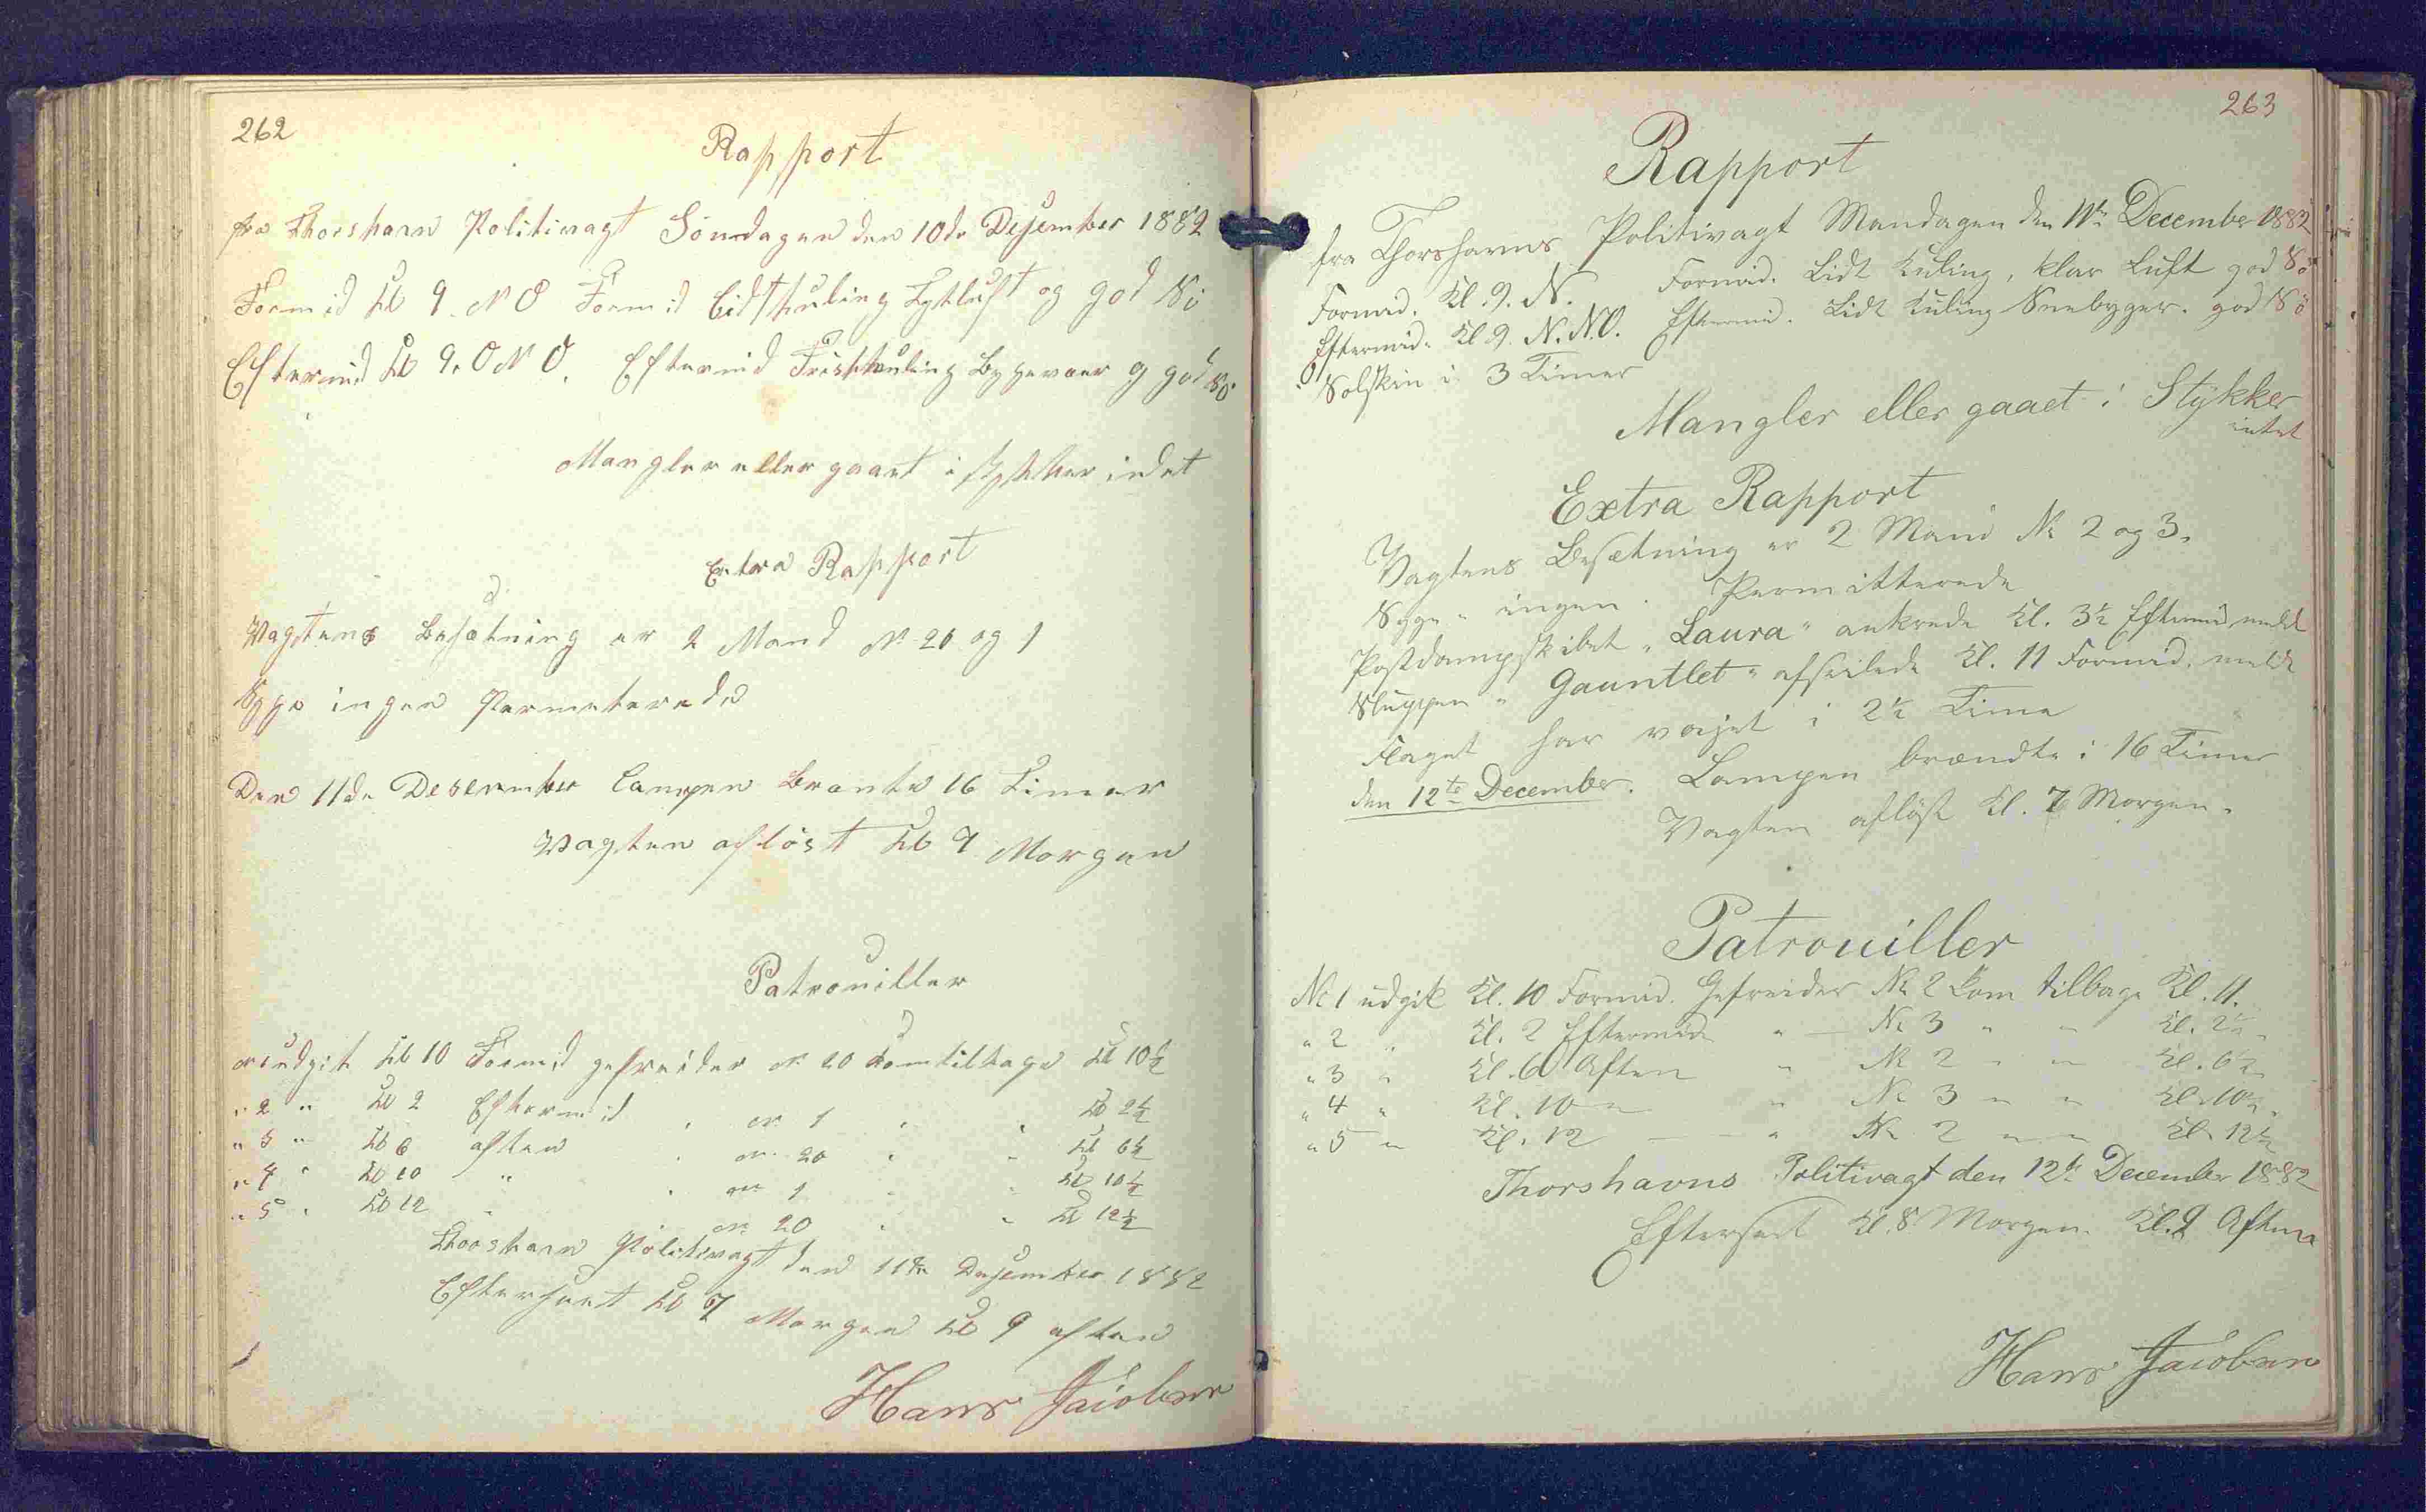 262
Rapport
fra Thorshavn Politivagt Söndagen den 10de Desember 1882
Formid Kl 9. N O Formid Lidt Kuling Tykluft og god Sö
Eftermid Kl 9. O N O. Eftermid Frisk Kuling Bygevær og god Sö
Mangler eller gaaet i stykker indet
Extra Rapport
Vagtens Besætning er 2 Mand No 20 og 1
Syge ingen Permeterede
Den 11de Desember Lampen Brante 16 Timer
Vagten aflöst Kl 7 Morgen
Patrouiller
No 1 udgik Kl 10 Formid gefreider No 20 Kom tilbage Kl 10½
" 2 " Kl 2 Eftermid " No 1 " " Kl 2½
" 3 " Kl 6 aften " No 20 " " Kl 6½
" 4 " Kl 10 " " No 1 " " Kl 10½
" 5 " Kl 12 " " No 20 " " Kl 12½
Thorshavn Politivagt den 11de Desember 1882
Efterseet Kl 7 Morgen Kl 9 aften
Hans Jacobsen
263
Rapport
fra Thorshavns Politivagt Mandagen den 11te December 1882
Formid. Kl. 9. N. Formid. Lidt Kuling, klar Luft god Sö
Eftermid. Kl 9. N.N.O. Eftermid. Lidt Kuling Sneebyger. god Sö
Solskin i 3 Timer
Mangler eller gaaet i Stykker
intet
Extra Rapport
Vagtens Besætning er 2 Mand No 2 og 3.
Syge " ingen. Permitterede
Postdampskibet "Laura" ankrede Kl. 3½ Eftermid meldt
Sluppen "Gauntlet" afseilede Kl. 11 Formid. meldt
Flaget har vajet i 2½ Time
den 12te December. Lampen brændte i 16 Timer
Vagten aflöst Kl. 7 Morgen.
Patrouiller
No 1 udgik Kl. 10 Formid. Gefreider No 2 kom tilbage Kl. 11.
" 2 " Kl. 2 Eftermid " No 3 " " Kl. 2½
" 3 " Kl. 6 Aften " No 2 " " Kl. 6½
" 4 " Kl. 10 " " No 3 " " Kl. 10½.
" 5 " Kl. 12 " " No 2 " " Kl. 12½
Thorshavns Politivagt den 12te December 1882
Efterseet Kl. 8 Morgen. Kl. 9 Aften
Hans Jacobsen